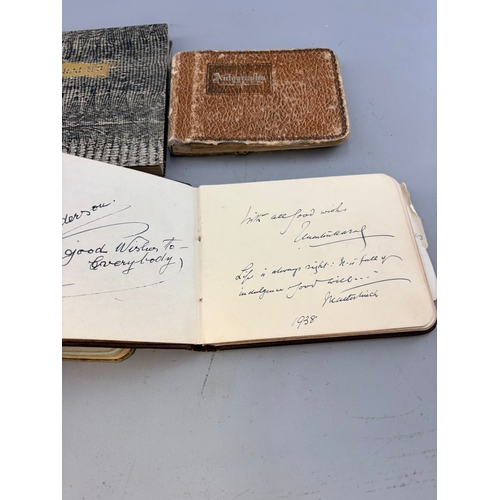 Autographs
good Wishes to
Everybody,
With all good wishes
Life is always right. It is full of
indulgence good will...
1938